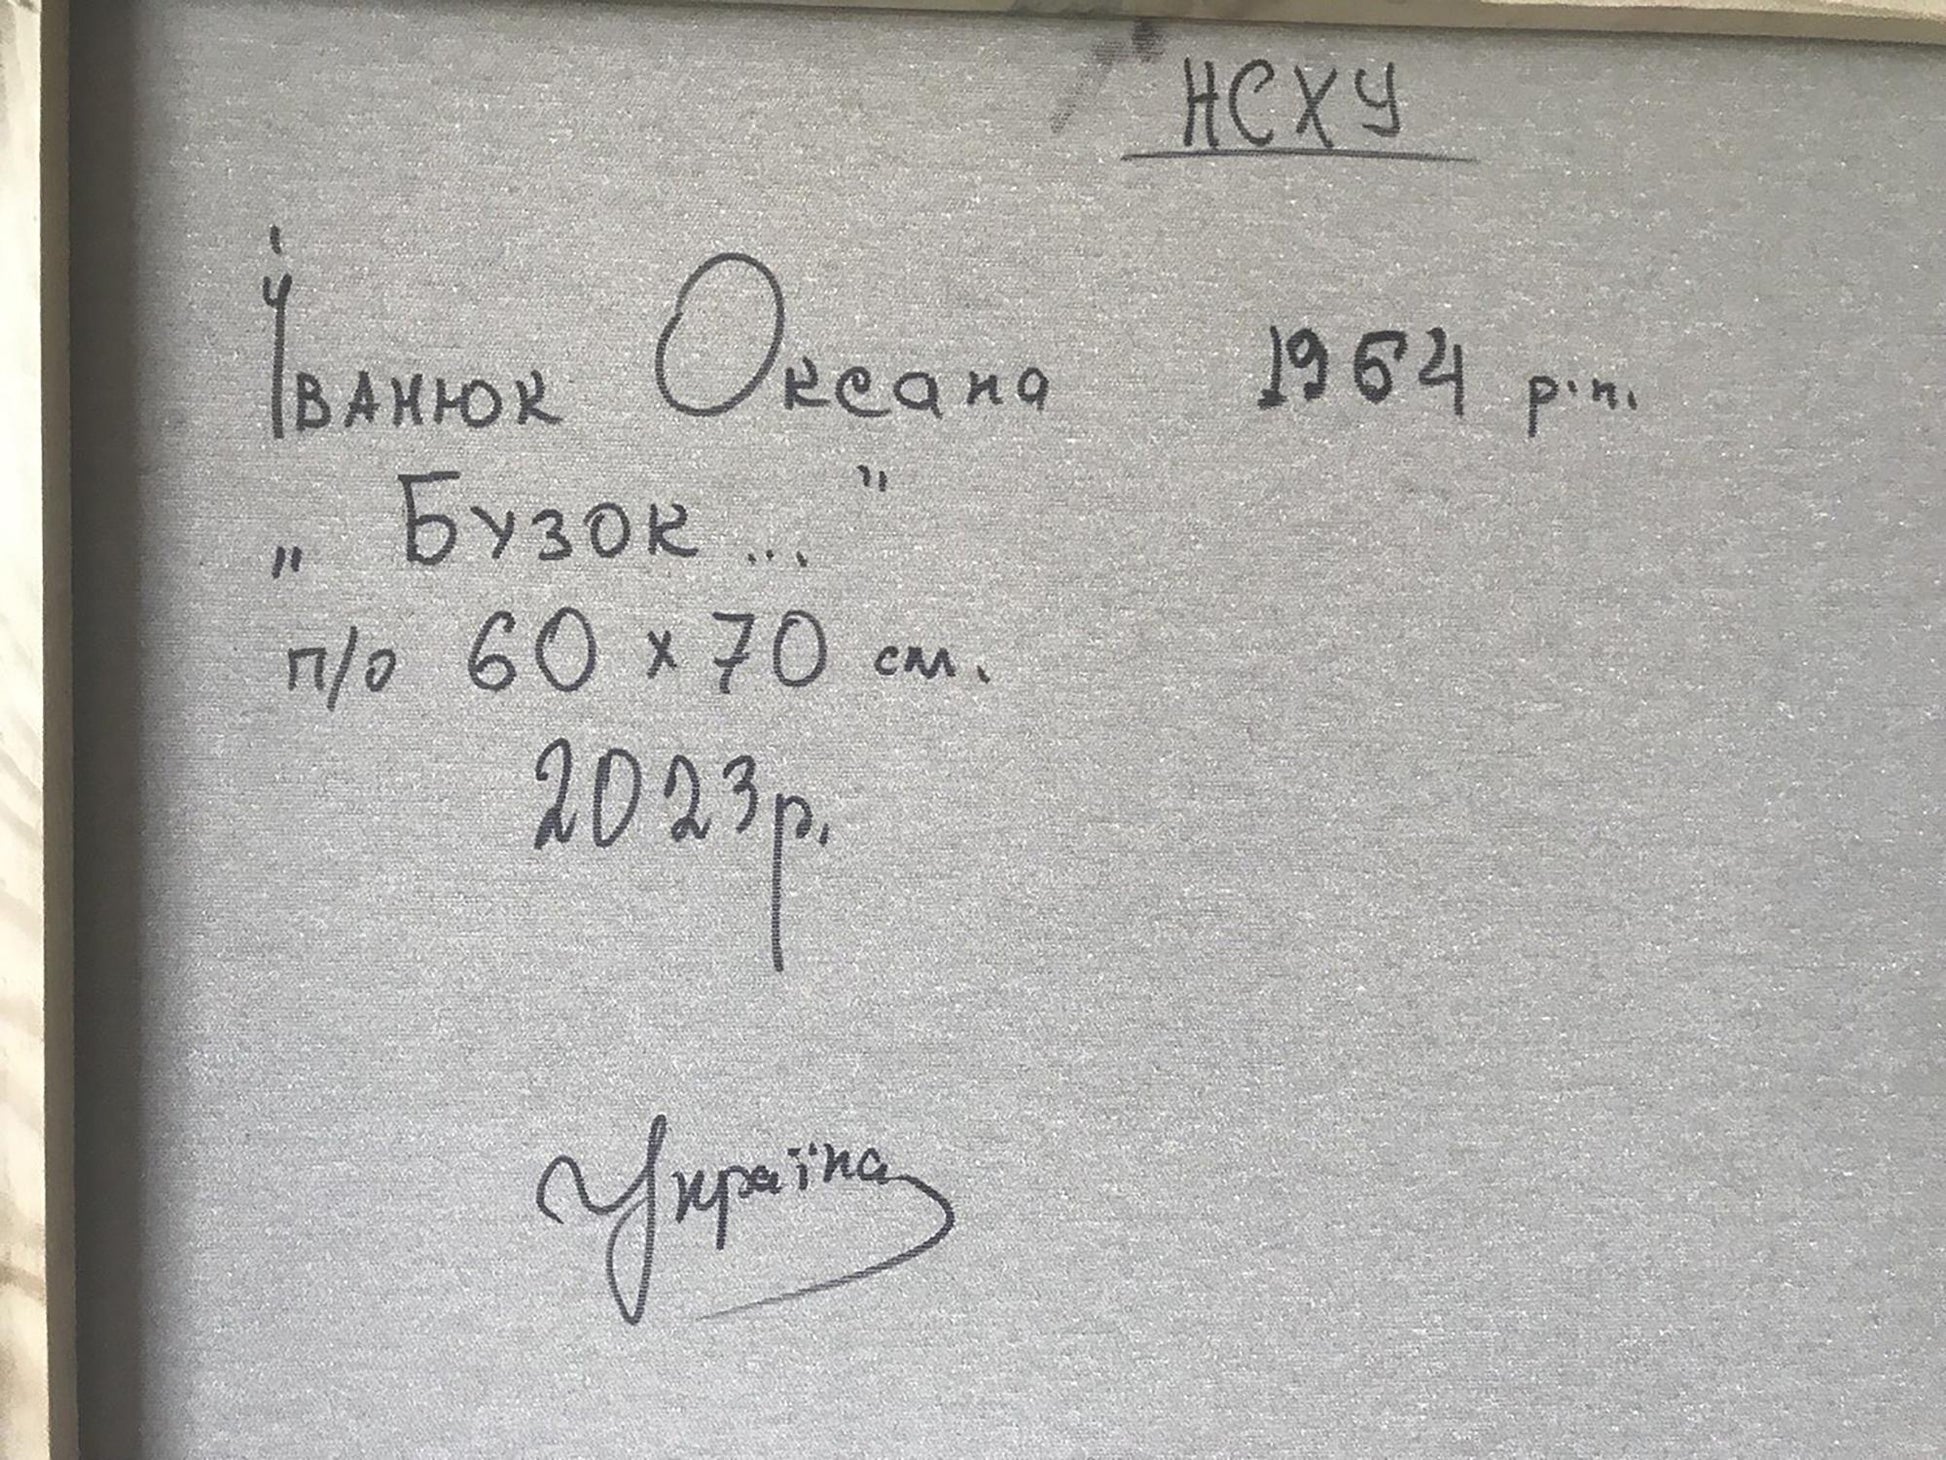 НСХУ
Іванюк Оксана 1964 р.н.
„Бузок..."
п/о 60 x 70 см.
2023р.
Україна